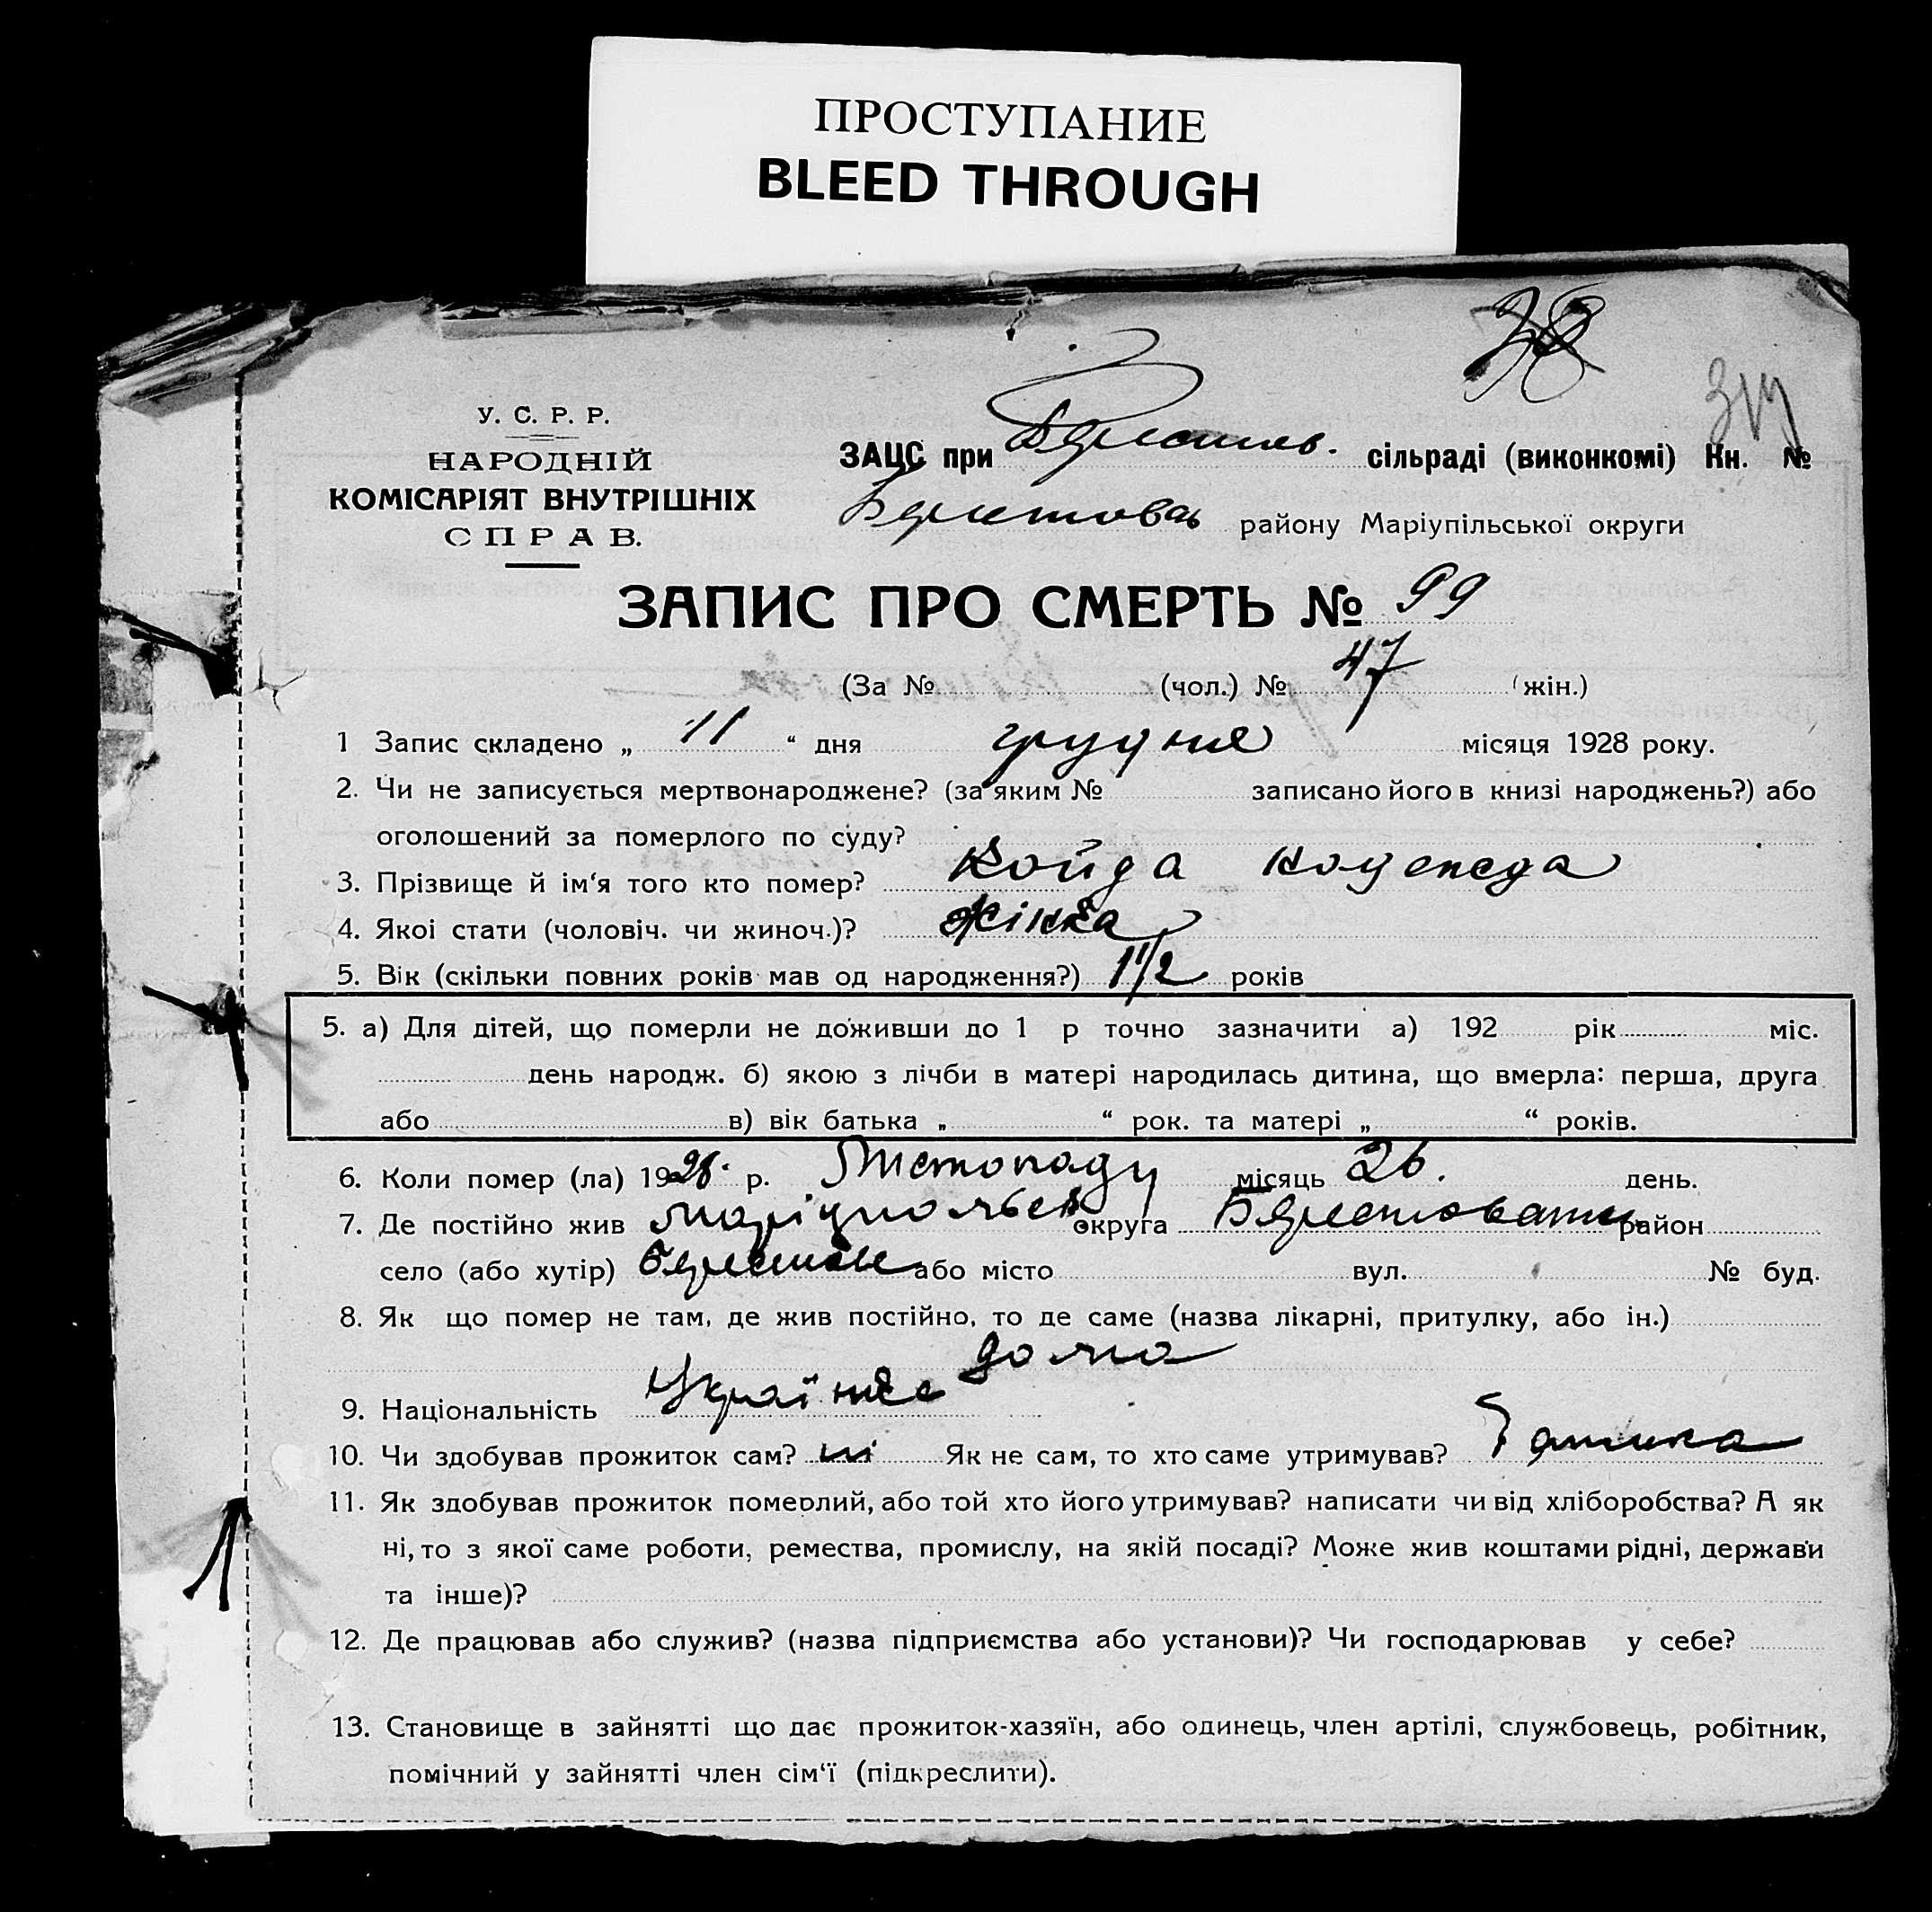 ПРОСТУПАНИЕ
BLEED THROUGH
38
У. С. Р. Р.
НАРОДНІЙ
КОМІСАРІЯТ ВНУТРІШНІХ
СПРАВ.
ЗАЦС при Берестов. сільраді (виконкомі) Кн. №
Берестовсь району Маріупільської округи
ЗАПИС ПРО СМЕРТЬ № 99
(За № (чол.) № 47 (жін.)
1 Запис складено „ 11 “ дня грудня місяця 1928 року.
2. Чи не записується мертвонароджене? (за яким № записано його в книзі народжень?) або
оголошений за померлого по суду?
3. Прізвище й ім‘я того кто помер? Койда
4. Якоі стати (чоловіч. чи жиноч.)? Жінка
5. Вік (скільки повних років мав од народження?) 1 1/2 років
5. а) Для дітей, що померли не доживши до 1 р точно зазначити а) 192 рік міс.
день народж. б) якою з лічби в матері народилась дитина, що вмерла: перша, друга
або в) вік батька „ “ рок. та матері „ “ років.
6. Коли помер (ла) 1928. р. Листопаду місяць 26. день.
7. Де постійно жив Маріупольськ округа Берестоватськ район
село (або хутір) Берестове або місто вул. № буд.
8. Як що помер не там, де жив постійно, то де саме (назва лікарні, притулку, або ін.)
дома
9. Національність Українка
10. Чи здобував прожиток сам? ні Як не сам, то хто саме утримував?
11. Як здобував прожиток померлий, або той хто його утримував? написати чи від хліборобства? А як
ні, то з якої саме роботи, ремества, промислу, на якій посаді? Може жив коштами рідні, держави
та інше)?
12. Де працював або служив? (назва підприємства або установи)? Чи господарював у себе?
13. Становище в зайнятті що дає прожиток-хазяїн, або одинець, член артілі, службовець, робітник,
помічний у зайнятті член сім‘ї (підкреслити).